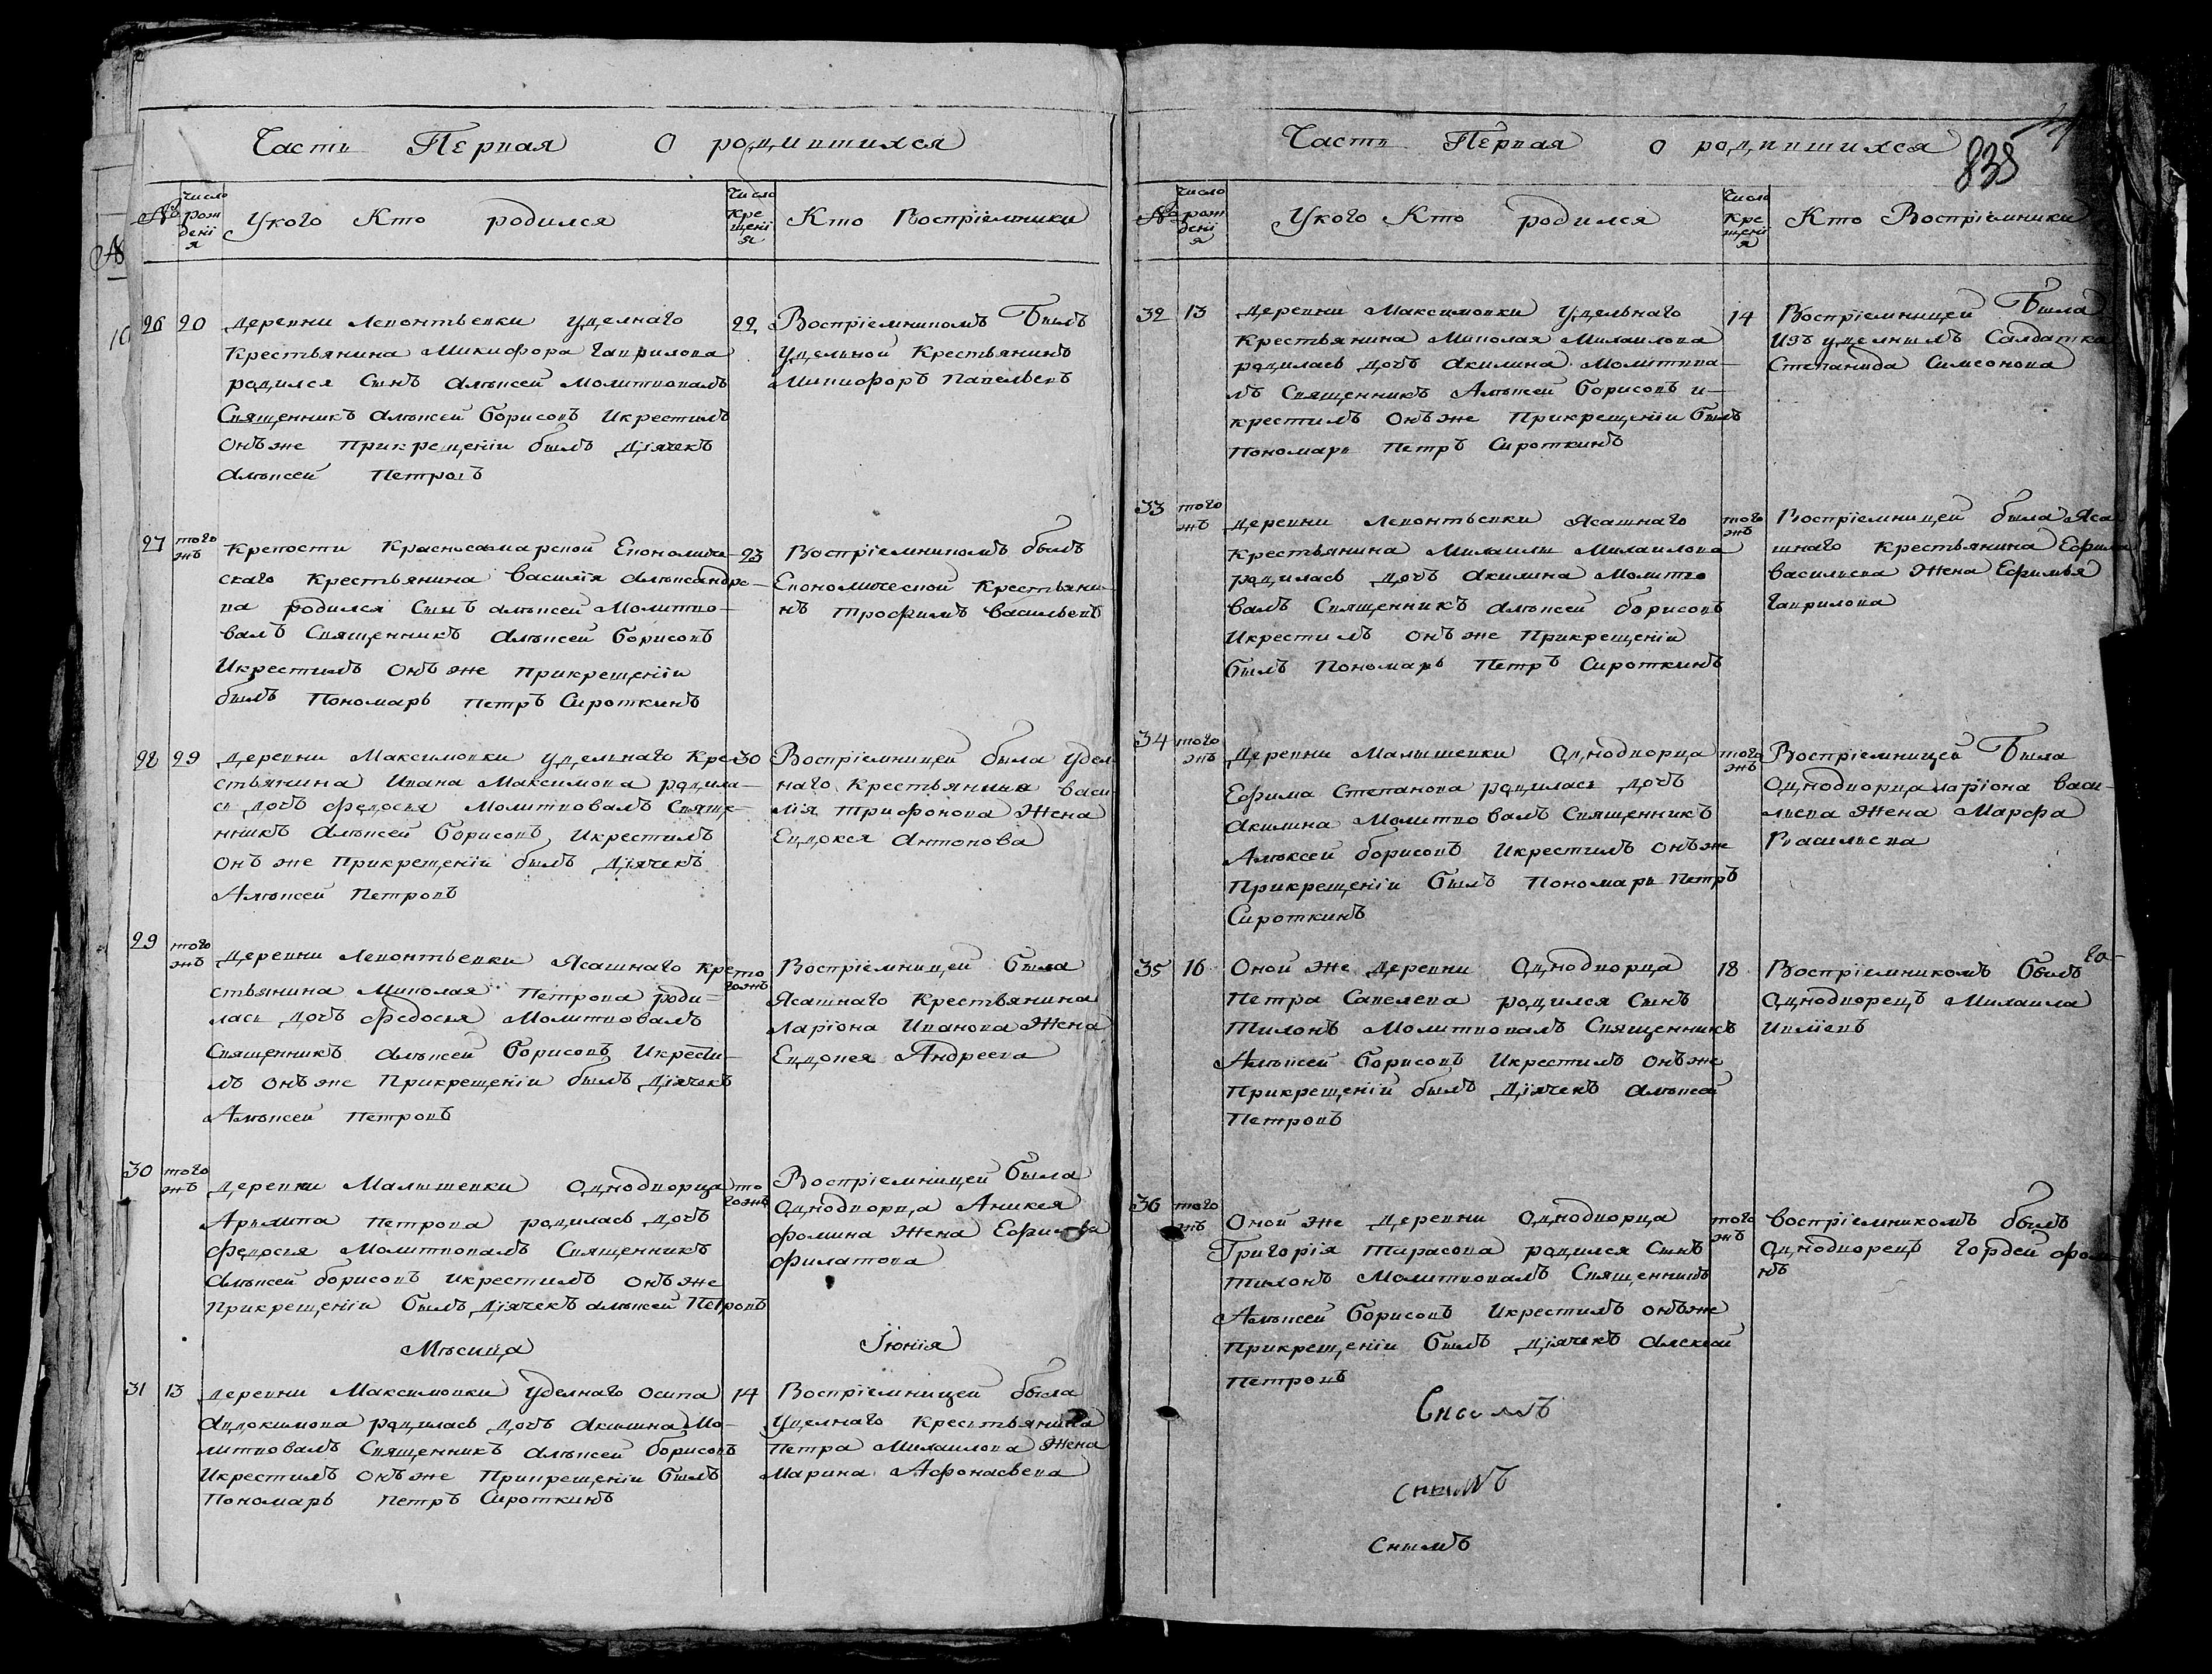 Часть Первая О родившихся
№ число рождения Укого Кто родился число крещенїя Кто Воспрїемники
26 20 деревни Леонтьевки Уделнаго
Крестьянина Никифора Гаврилова
родился Сынъ Алѣксей Молитвовалъ
Священникъ Алѣксей Борисовъ Икрестилъ
Онъже Прикрещенїи былъ Дїячекъ
Алѣксей Петровъ
22 Воспрїемникомъ Былъ
Удельной Крестьянинъ
Никифоръ Павельевъ
27 того жъ Крепости Красносамарской Економиче-
скаго Крестьянина Василїя Алѣксандро-
ва родился Сынъ Алѣксей Молитво-
валъ Священникъ Алѣксей Борисовъ
Икрестилъ Онъже Прикрещенїи
былъ Пономарь Петръ Сироткинъ
23 Воспрїемникомъ былъ
Економической Крестьяни-
нъ Трофимъ Васильевъ
28 29 деревни Максимовки Удельнаго Кре-
стьянина Ивана Максимова родила-
сь дочь Федосья Молитвовалъ Свяще-
нникъ Алѣксей Борисовъ Икрестилъ
Онъже Прикрещенїи былъ Дїячекъ
Алѣксей Петровъ
30 Воспрїемницей была Удел-
наго Крестьянина Васи-
лїя Трифонова Жена
Евдокея Антонова
29 того жъ деревни Леонтьевки Ясашнаго Кре-
стьянина Николая Петрова роди-
лась дочь Федосья Молитвовалъ
Священникъ Алѣксей Борисовъ Икрести-
лъ Онъже Прикрещенїи былъ Дїячекъ
Алѣксей Петровъ
тогожъ Воспрїемницей была
Ясашнаго Крестьянина
Ларїона Иванова Жена
Евдокея Андреева
30 того жъ деревни Малышевки Однодворца
Архипа Петрова родилась дочь
Федосья Молитвовалъ Священникъ
Алѣксей Борисовъ Икрестилъ Онъже
Прикрещенїи былъ Дїячекъ Алѣксей Петровъ
тогожъ Воспрїемницей была
Однодворца Аникея
Фомина Жена
Филатова
Мѣсица Їюнїя
31 13 деревни Максимовки Уделнаго Осипа
Авдокимова родилась дочь Акилина Мо-
литвовалъ Священникъ Алѣксей Борисовъ
Икрестилъ Онъже Прикрещенїи былъ
Пономарь Петръ Сироткинъ
14 Воспрїемницей была
Уделнаго Крестьянина
Петра Михаилова Жена
Марина Афонасьева
Часть Первая О родившихся 838
№ число рожденїя Укого Кто родился число крещенїя Кто Воспрїемники
32 13 Деревни Максимовки Удельнаго
Крестьянина Николая Михаилова
родилась дочь Акилина Молитвва-
лъ Священникъ Алѣксей Борисовъ и-
крестилъ Онъже Прикрещенїи былъ
Пономарь Петръ Сироткинъ
14 Воспрїемницей Была
Изъ уделныхъ Салдатка
Степанида Симеонова
33 того жъ деревни Леонтьевки Ясашнаго
Крестьянина Михаилы Михаилова
родилась дочь Акилина Молитво
валъ Священникъ Алѣксей Борисовъ
Икрестилъ Онъже Прикрещенїи
былъ Пономарь Петръ Сироткинъ
того жъ Воспрїемницей была Яса-
шнаго Крестьянина Ефима
Васильева Жена Ефимья
Гаврилова
34 того жъ Деревни Малышевки Однодворца
Ефима Степанова родилась дочь
Акилина Молитвовалъ Священникъ
Алѣксей Борисовъ Икрестилъ Онъже
Прикрещенїи былъ Пономарь Петръ
Сироткинъ
того жъ Воспрїемницей Была
Однодворца Ларїона Васи-
льева Жена Марфа
Васильева
35 16 Оной же деревни Однодворца
Петра Савелева родился Сынъ
Тихонъ Молитвовалъ Священникъ
Алѣксей Борисовъ Икрестилъ Онъже
Прикрещенїй былъ Дїячекъ Алѣксей
Петровъ
18 Воспрїемникомъ былъ
Однодворецъ Михаила
36 того жъ Оной же деревни Однодворца
Григорїя Тарасова родился Сынъ
Тихонъ Молитвовалъ Священникъ
Алѣксей Борисовъ Икрестилъ Онъже
Прикрещенїи былъ Дїячекъ Алексей
Петровъ
того жъ Воспрїемникомъ былъ
Однодворецъ Гордей Фоми
нъ